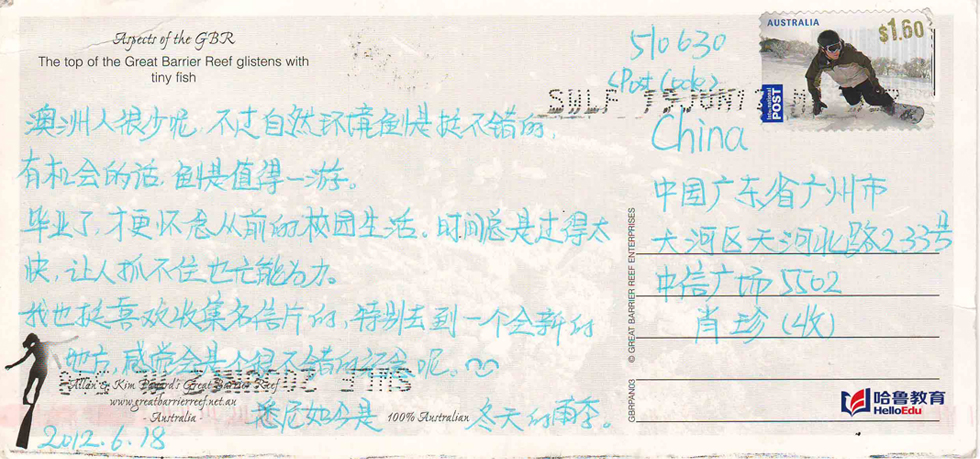 Aspects of the GBR
The top of the Great Barrier Reef glistens with
tiny fish
澳洲人很少呢，不过自然环境倒是挺不错的，
有机会的话，倒是值得一游。
毕业了，才更怀念从前的校园生活。时间总是过得太
快，让人抓不住也无能为力。
我也挺喜欢收集名信片的，特别去到一个全新的
地方，感觉会是个很不错的纪念呢。
悉尼如今是 冬天的雨季。
2012.6.18
Allan & Kim Great Barrier Reef
www.greatbarrierreef.net.au
- Australia
100% Australian
© GREAT BARRIER REEF ENTERPRISES
GBRPAN03
AUSTRALIA
$1.60
International
POST
510630
(Post Code)
SWLF
China
中国广东省广州市
天河区天河北路233号
中信广场5502
肖珍(收)
哈鲁教育
HelloEdu